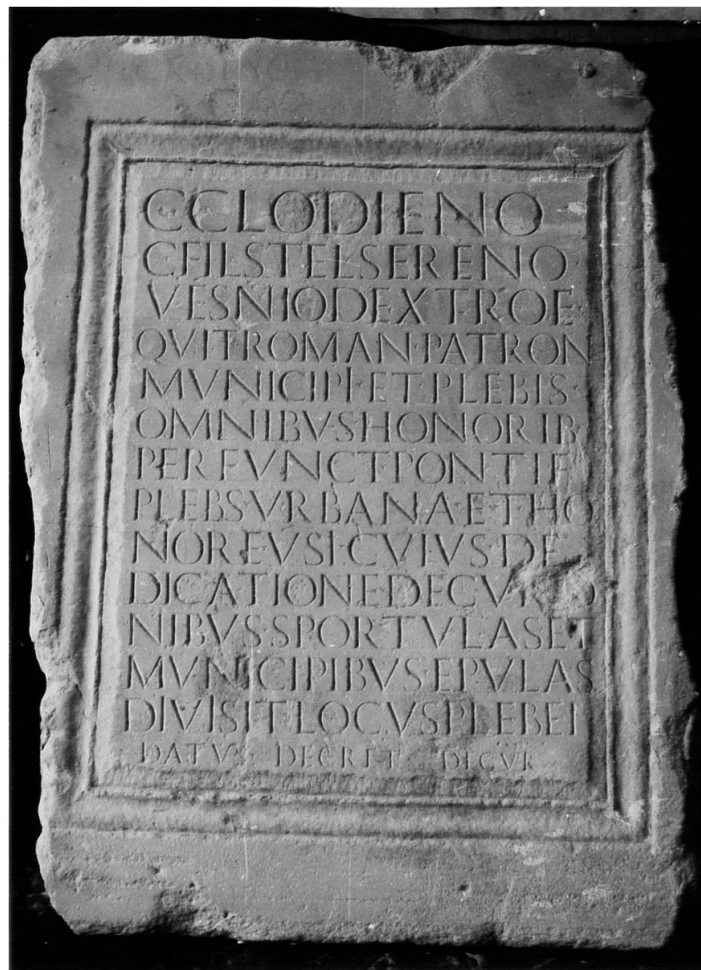 C CLODIENO
C·FIL STEL SERENO
VESNIO DEXTRO E
QVIT·ROMAN·PATRON
MVNICIPI ET PLEBIS
OMNIBVS HONORIB
PERFVNCT PONTIF
PLEBS·VRBANA·ET·HO
NORE VSI CVIVS DE
DICATIONE DECVRIO
NIBVS SPORTVLAS ET
MVNICIPIBVS EPVLAS
DIVISIT LOCVS PLEBEI
DATVS DECRET DECVR